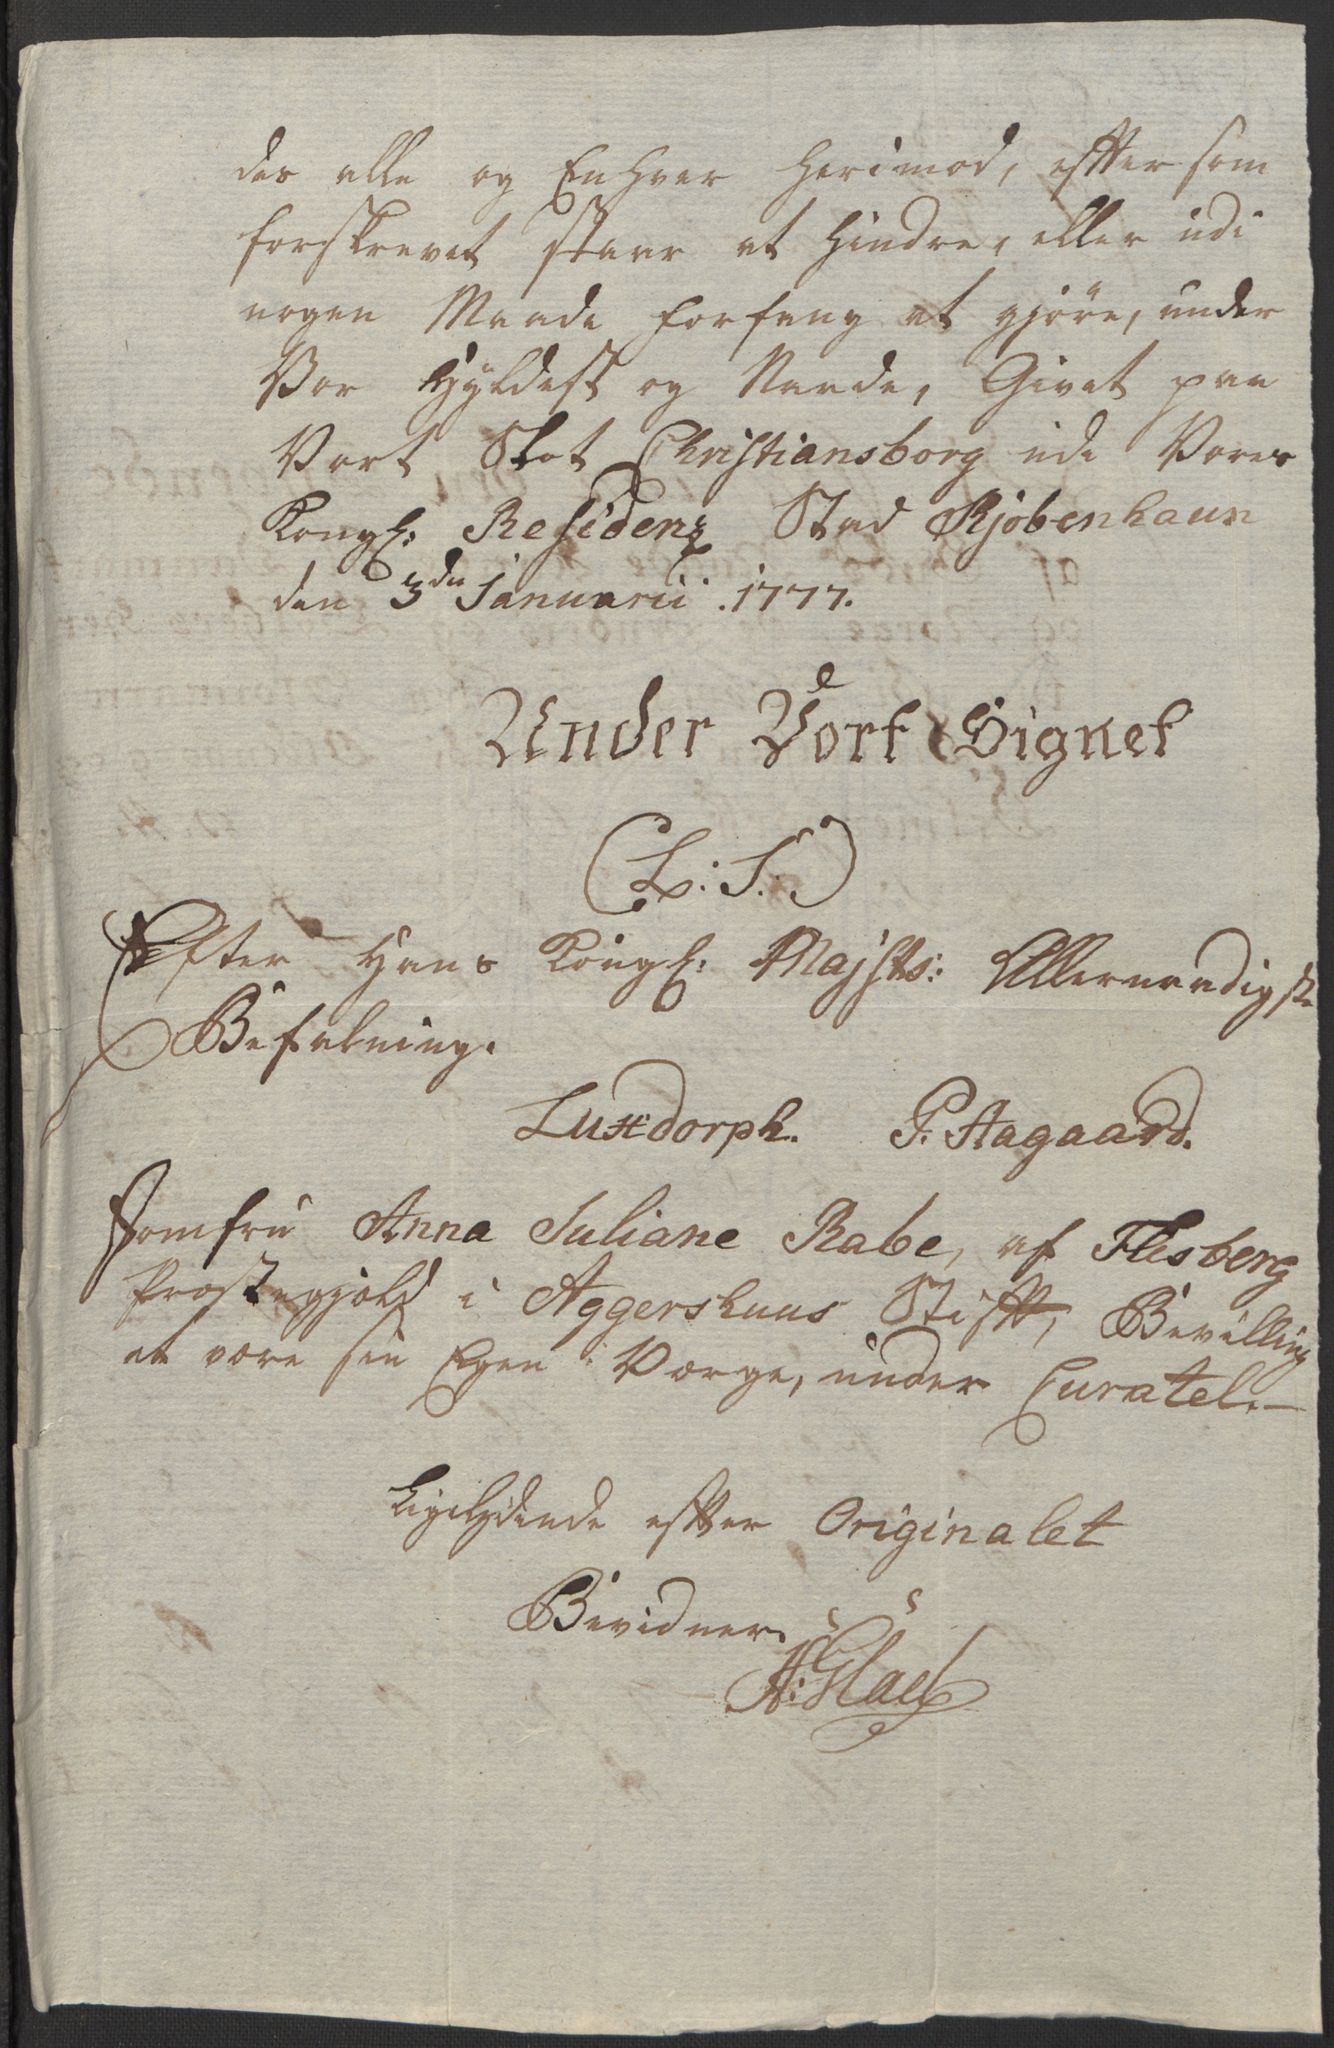 des alle og Enhver herimod, efter som
forskrevet staar at hindre, eller udi
nogen Maade forfang at gjöre, under
Vor Hyldest og Naade, Givet paa
Vort Slot Christiansborg udi Vores
Kongl: Residenz Stad Kjöbenhaun
den 3die Januarii 1777.
Under Vort Signet
(L. S.)
Efter Hans Kongl: Majsts: Allernaadigste
Befalning.
Luxdorph. P. Aagaard.
Jomfru Anna Juliane Rabe, af Flesberg
Præstegjeld i Aggershuus Stift, Bevilling
at være sin Egen Værge, under Curatel.
Ligelydende efter Originalet
Bevidner.